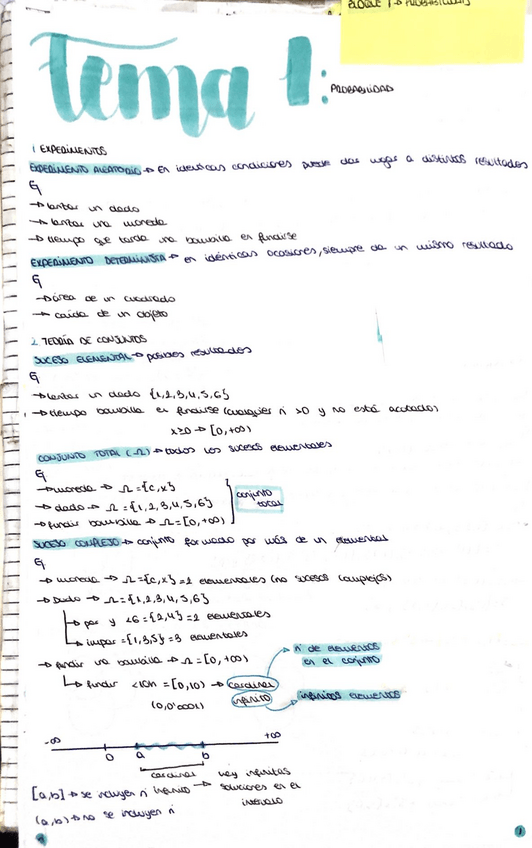 BLOQUE 1 → PROBABILIDAD
Tema 1:
PROBABILIDAD
1. EXPERIMENTOS
EXPERIMENTO ALEATORIO → En idénticas condiciones puede dar lugar a distintos resultados
Ej
→ lanzar un dado
→ lanzar una moneda
→ tiempo que tarda una bombilla en fundirse
EXPERIMENTO DETERMINISTA → en idénticas ocasiones, siempre da un mismo resultado
Ej
→ área de un cuadrado
→ caída de un objeto
2. TEORÍA DE CONJUNTOS
SUCESO ELEMENTAL → posibles resultados
Ej
→ lanzar un dado {1,2,3,4,5,6}
→ tiempo bombilla en fundirse (cualquier n >0 y no está acotado)
x≥0 → [0,+∞)
CONJUNTO TOTAL (Ω) → todos los sucesos elementales
Ej
→ moneda → Ω={c,x}
→ dado → Ω={1,2,3,4,5,6}
→ fundir bombilla → Ω=[0,+∞)
conjunto total
SUCESO COMPLEJO → conjunto formado por más de un elemental
Ej
→ moneda → Ω={c,x}=2 elementales (no sucesos complejos)
→ Dado → Ω={1,2,3,4,5,6}
→ par y <6={2,4}=2 elementales
→ impar={1,3,5}=3 elementales
→ fundir una bombilla → Ω=[0,+∞)
→ fundir <10h =[0,10) → cardinal
infinito
(0,0'0001)
nº de elementos
en el conjunto
infinitos elementos
-∞ 0 a b +∞
cardinal
infinito → hay infinitas
soluciones en el
intervalo
[a,b] → se incluyen n
(a,b) → no se incluyen n